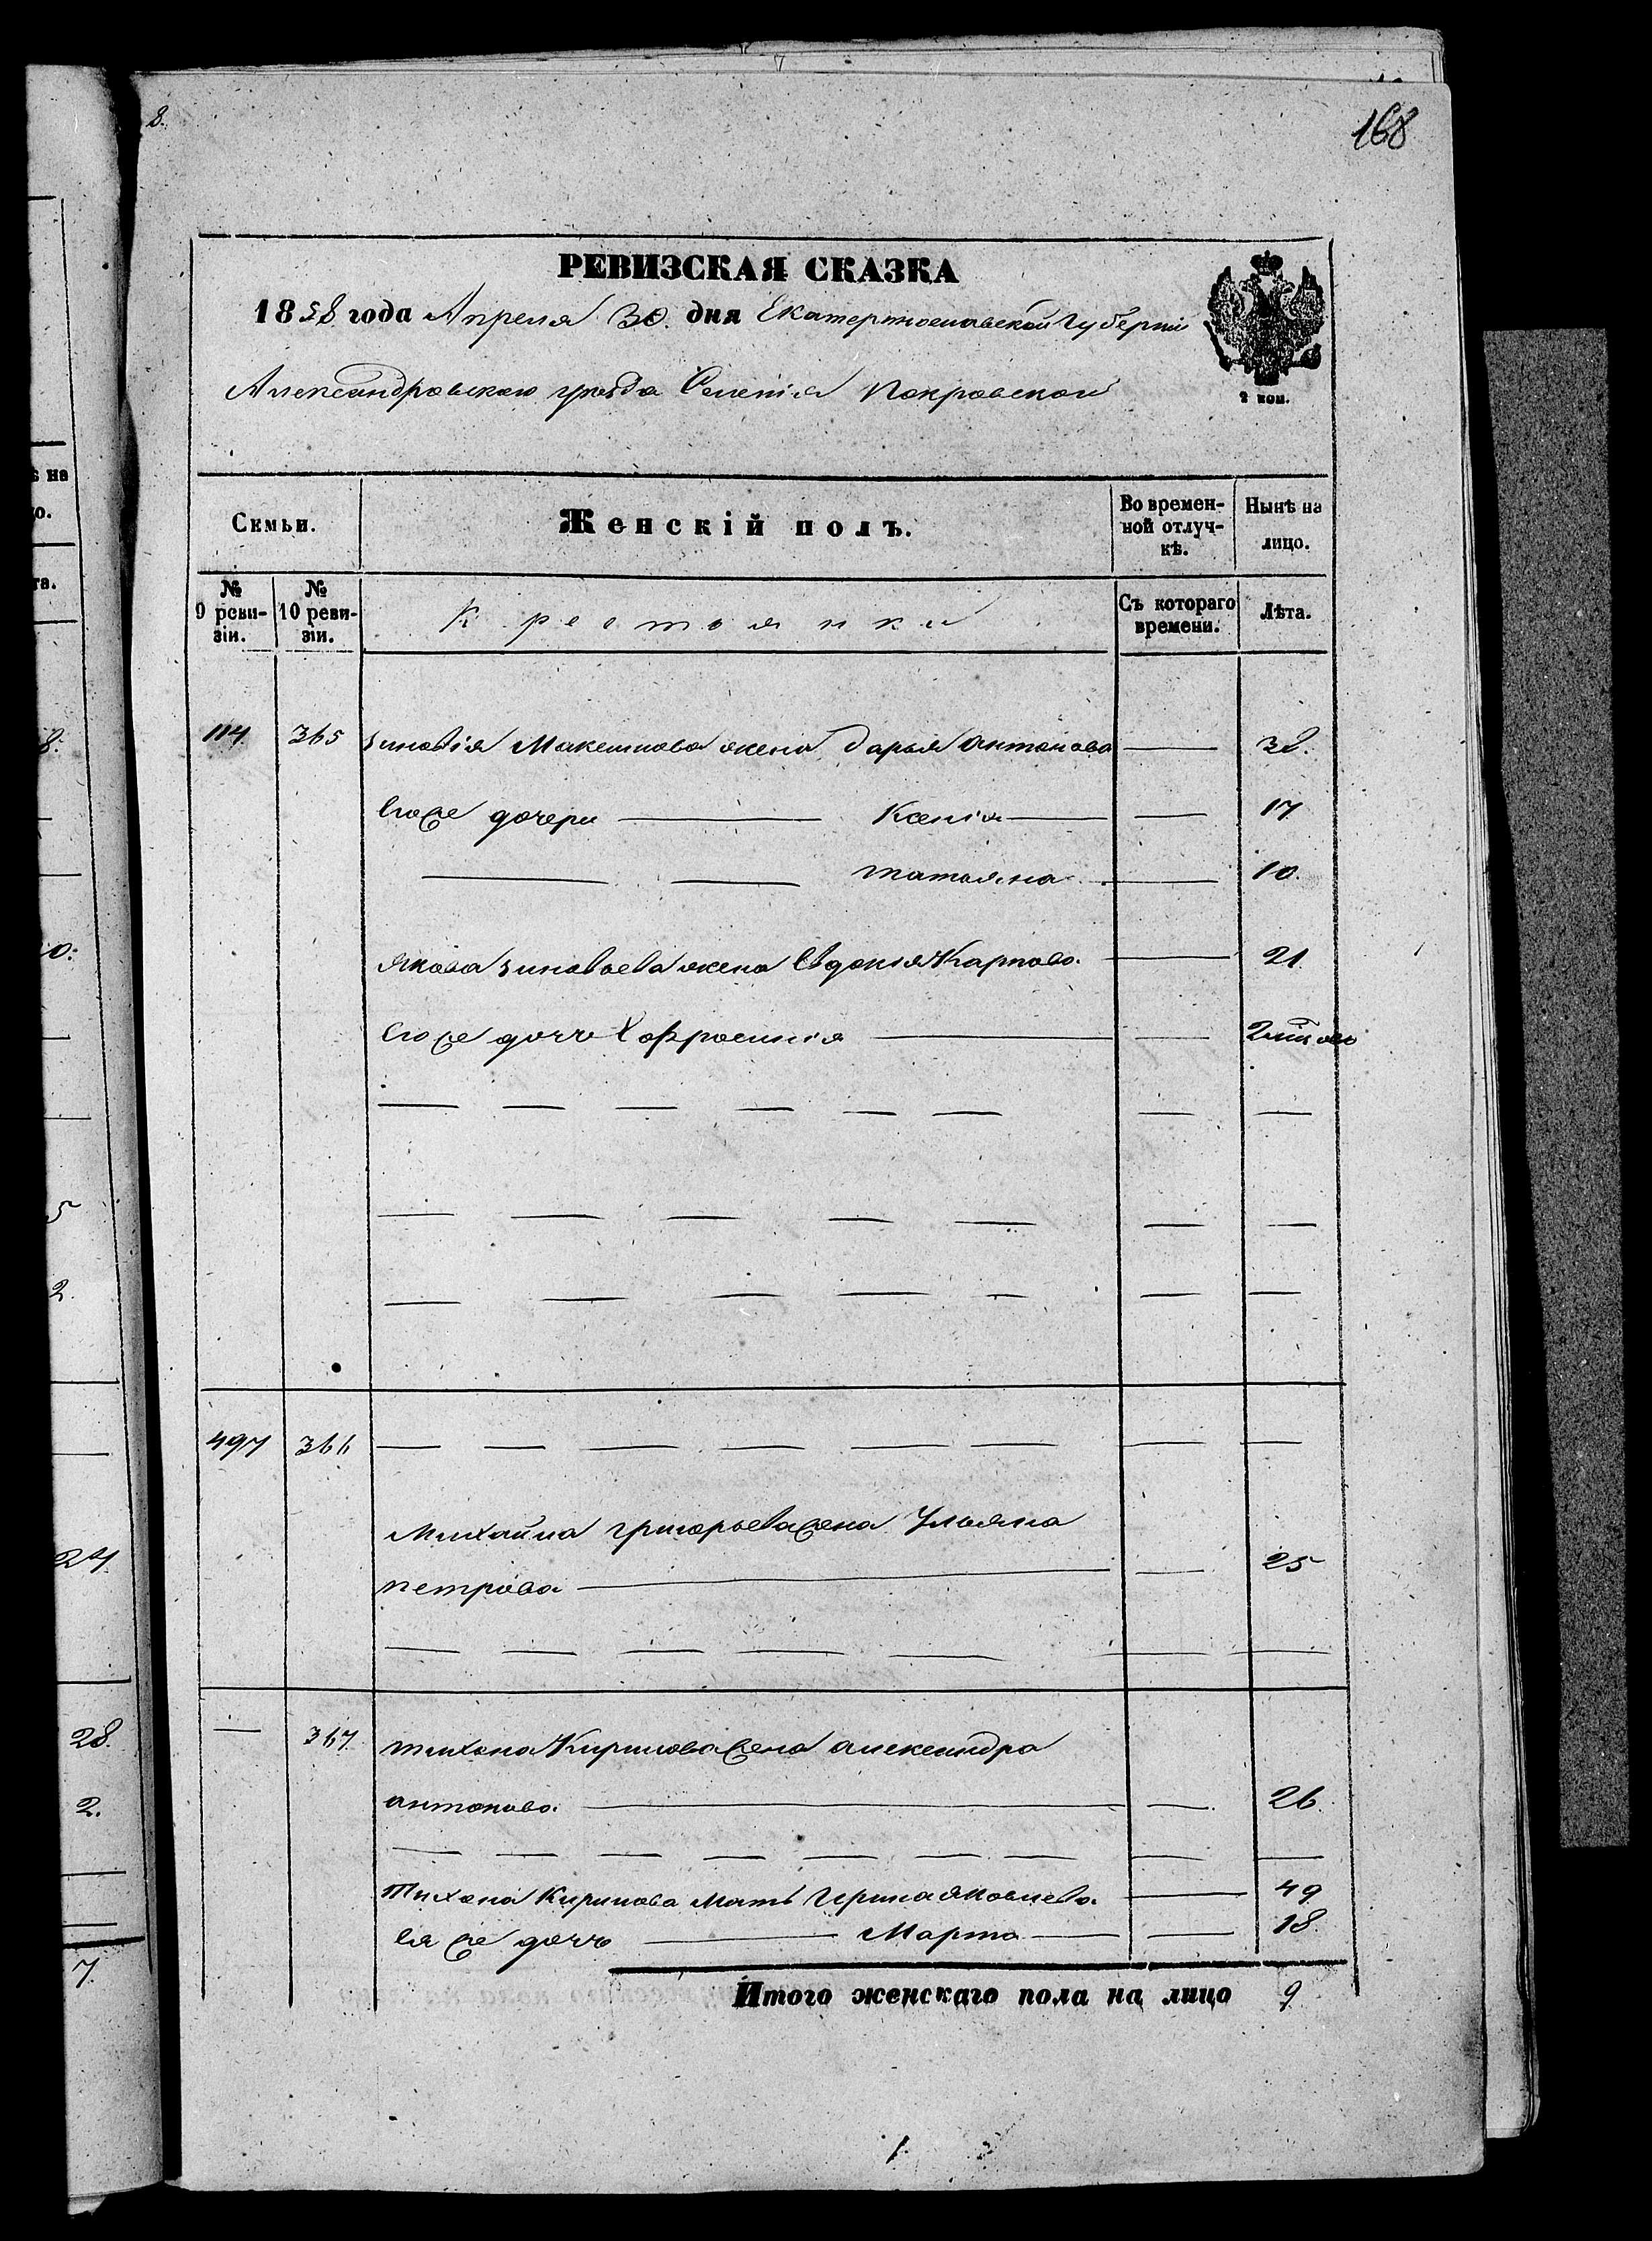 8.
168
РЕВИЗСКАЯ СКАЗКА
1858 года Апреля 30. дня Екатеринославской Губернии
Александровскаго уезда Селения Покровской
2 коп.
Семьи.
Женскій полъ.
Во времен-
ной отлуч-
кѣ.
Нынѣ на
лицо.
№
9 реви-
зіи.
№
10 реви-
зіи.
Крестьянки
Съ котораго
времени.
Лѣта.
114. 365 Зиновія Максимова жена Дарья Антонова — 38.
Егоже дочери — Ксенія — 17
— — Татьяна — 10.
Якова Зиновьева жена Евдокія Карпова — 21
Егоже дочь Евфросинія —
497 366 — — — — — — — —
Михайла Григорьева жена Ульяна
Петрова — 25
— 367 Тихона Кирилова жена Александра
Антонова — 26.
Тихона Кирилова Мать Ирина Яковлева — 49
Ея же дочь — Марта — 18.
Итого женскаго пола на лицо 9
ѣ на
цо.
та.
8.
0.
5
2.
24
28.
2.
7.